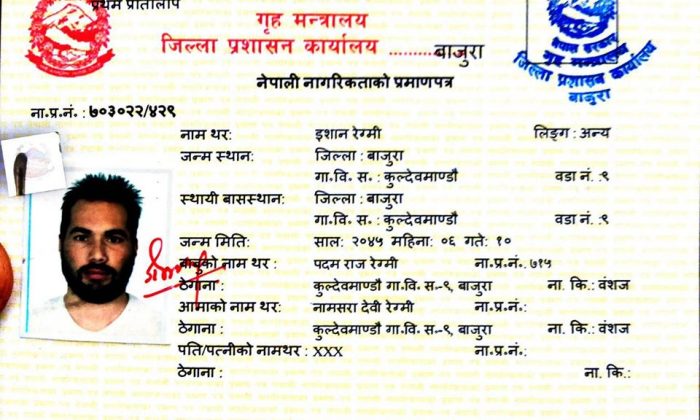 प्रथम प्रतिलिपि
गृह मन्त्रालय
जिल्ला प्रशासन कार्यालय ..........बाजुरा
नेपाल सरकार
गृह मन्त्रालय
जिल्ला प्रशासन कार्यालय
बाजुरा
नेपाली नागरिकताको प्रमाणपत्र
ना.प्र.नं. : ७०३०२२/४२९
नाम थर: इशान रेग्मी लिङ्ग : अन्य
जन्म स्थान: जिल्ला : बाजुरा
गा.वि. स. : कुल्देवमाण्डौ वडा नं. :९
स्थायी बासस्थान: जिल्ला : बाजुरा
गा.वि. स. : कुल्देवमाण्डौ वडा नं. :९
जन्म मिति: साल: २०४५ महिना: ०६ गते: १०
बाबुको नाम थर : पदम राज रेग्मी ना.प्र.नं.. ७१५
ठेगाना : कुल्देवमाण्डौ गा.वि. स.-९, बाजुरा ना. कि.: वंशज
आमाको नाम थर: नामसरा देवी रेग्मी ना.प्र.नं.:
ठेगाना : कुल्देवमाण्डौ गा.वि. स.-९, बाजुरा ना. कि.: वंशज
पति/पत्नीको नामथर : XXX ना.प्र.नं.:
ठेगाना: ना. कि.: